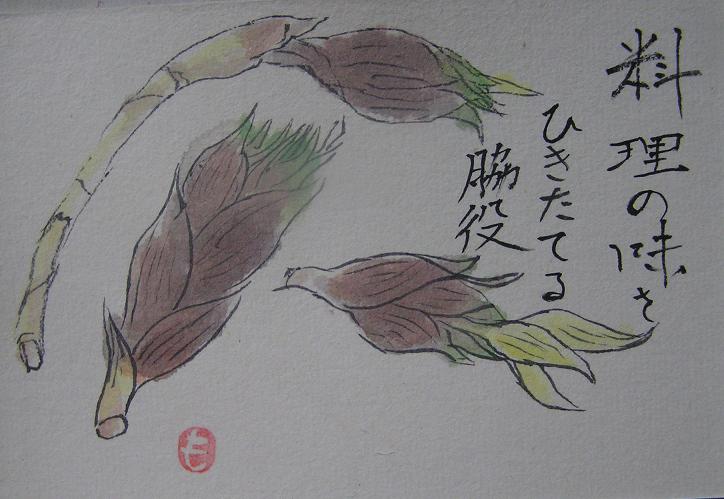 料理の味を
ひきたてる
脇役